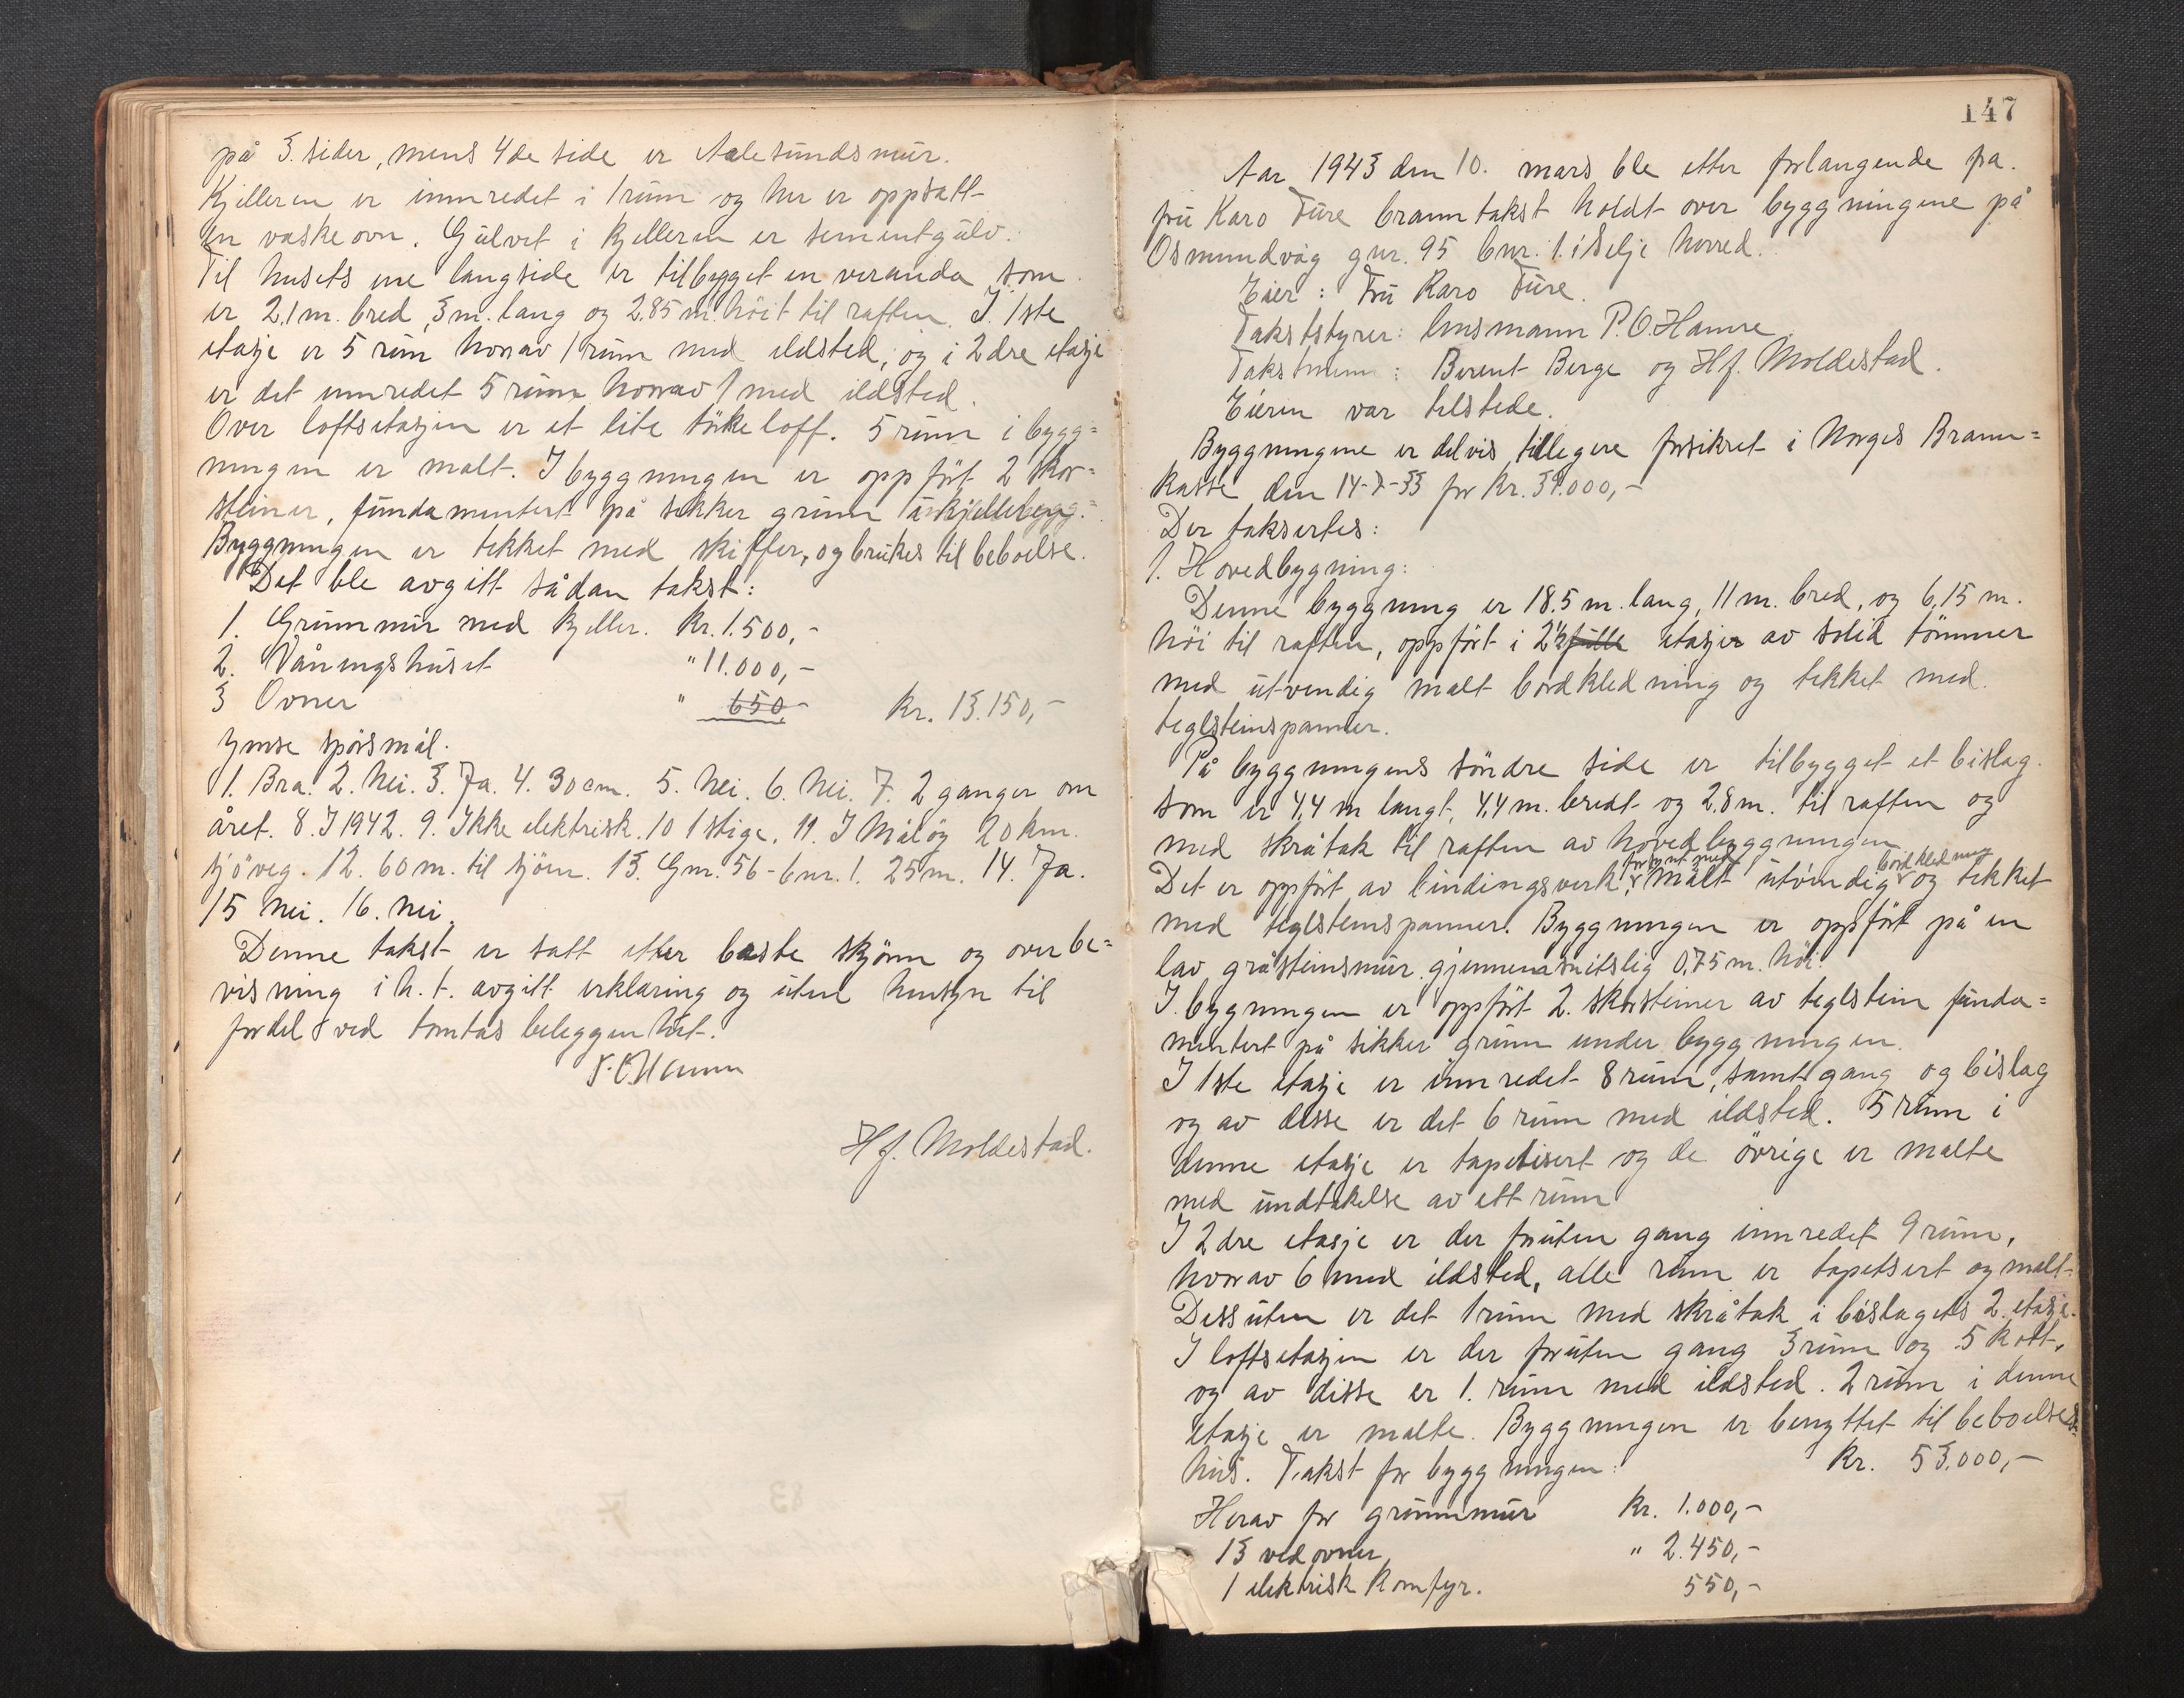 på 3. sider, mens 4de side er Aalesundsmur.
Kjelleren er innredet i 1 rum og her er oppsatt
en vaskeovn. Gulvet i kjelleren er sementgulv.
Til husets ene langside er tilbygget en veranda som
er 2,1 m. bred, 3 m. lang og 2.85 m. höit til raften. I. 1ste
etasje er 5 rum hvorav 1 rum med ildsted, og i 2dre etasje
er det innredet 5 rum hvorav 1 med ildsted.
Over loftsetasjen er et lite törkeloft. 5 rum i bygg=
ningen er malt. I byggningen er oppfört 2 skor=
steiner, fundamentert på sikker grunn
Byggningen er tekket med skiffer, og brukes til beboelse.
Det ble avgitt sådan takst:
1. Grunnmur med kjeller. Kr. 1.500,-
2. Våningshuset " 11.000,-
3 Ovner " 650,- Kr. 13.150,-
Ymse spörsmål.
1. Bra. 2. Nei. 3. Ja. 4. 30 cm. 5. Nei. 6. Nei. 7. 2 ganger om
året. 8. I 1942. 9. Ikke elektrisk. 10 1 stige. 11. I Måløy 20 km.
sjöveg. 12. 60 m. til sjöen. 13. Gnr. 56 - bnr. 1. 25 m. 14. Ja.
15 Nei. 16. Nei.
Denne takst er satt etter beste skjönn og overbe=
visning i h. t. avgitt erklæring og uten hensyn til
fordel ved tomtas beleggenhet.
P. O. Hamre
Hj. Moldestad.
147
Aar 1943 den 10. mars ble etter forlangende fra
fru Karo Fure branntakst holdt over byggningene på
Osmundvåg gnr. 95 bnr. 1. i Selje herred.
Eier: Fru Karo Fure.
Takststyrer: lensmann P. O. Hamre.
Takstmenn: Berent Berge og Hj. Moldestad.
Eieren var tilstede.
Byggningene er delvis tillegere forsikret i Norges Brann=
kasse den 14-7-33 for kr. 39.000,-
Der taksertes:
1. Hovedbygning:
Denne byggning er 18.5 m. lang, 11 m. bred, og 6,15 m.
höi til raften, oppfört i 2½ fulle etasjer av solid tömmer
med utvendig malt bordkledning og tekket med
teglsteinspanner.
På byggningens söndre side er tilbygget et bislag.
som er 4,4 m langt, 4,4 m. bredt og 2,8 m. til raften og
med skråtak til raften av hovedbyggningen.
Det er oppfört av bindingsverk, forsynt med malt utvendig bordkledning og tekket
med teglsteinspanner. Byggningen er oppfört på en
lav gråsteinsmur gjennemsnitslig 0,75 m. höi.
I bygningen er oppfört 2. skorsteiner av teglstein funda=
mentert på sikker grunn under byggningen.
I 1ste etasje er innredet 8 rum, samt gang og bislag
og av disse er det 6 rum med ildsted. 5 rum i
denne etasje er tapetisert og de övrige er malte
med undtakelse av ett rum
I 2dre etasje er der foruten gang innredet 9 rum,
hvorav 6 med ildsted, alle rum er tapetsert og malt.
Dessuten er det 1 rum med skråtak i bislagets 2. etasje.
I loftsetasjen er der foruten gang 3 rum og 5 kott,
og av disse er 1. rum med ildsted. 2 rum i denne
etasje er malte. Byggningen er benyttet til beboelses=
hus. Takst for byggningen: Kr. 53.000,-
Herav for grunnmur Kr. 1.000,-
13 vedovner " 2.450,-
1 elektrisk komfyr. 550,-